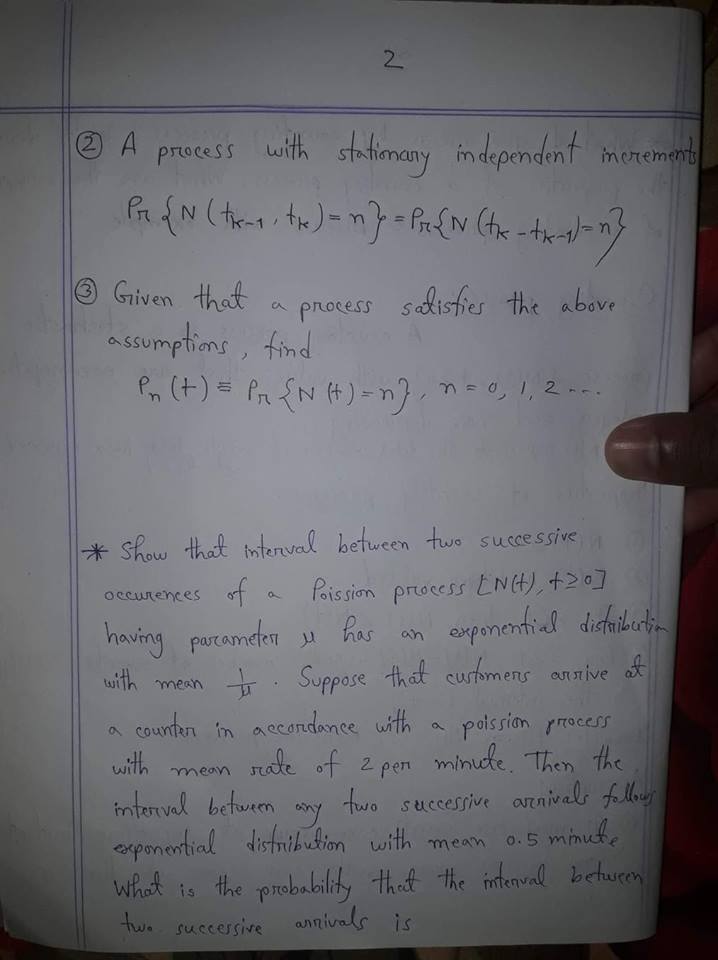 2
② A process with stationary independent increments
Pr {N (tk-1, tk) = n} = Pr{N (tk - tk-1) = n}
③ Given that a process satisfies the above
assumptions, find
Pn (t) ≡ Pr {N (t) = n}, n = 0, 1, 2 ...
* Show that interval between two successive
occurences of a Poission process [N(t), t ≥ 0]
having parameter μ has an exponential distribution
with mean 1/μ. Suppose that customers arrive at
a counter in accordance with a poission process
with mean rate of 2 per minute. Then the
interval between any two successive arrivals follows
exponential distribution with mean 0.5 minute
What is the probability that the interval between
two successive arrivals is